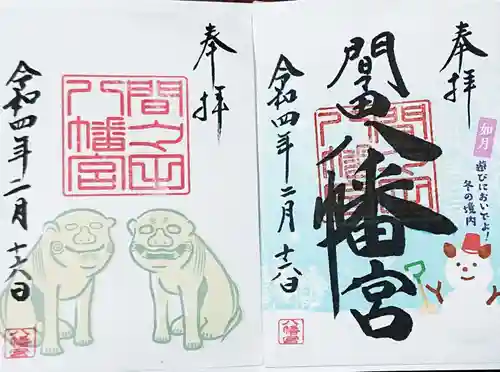 奉拝
間々田
八幡宮
令和四年二月十六日
八幡宮
奉拝
如月
遊びにおいでよ!
冬の境内
間々田八幡宮
令和四年二月十六日
八幡宮